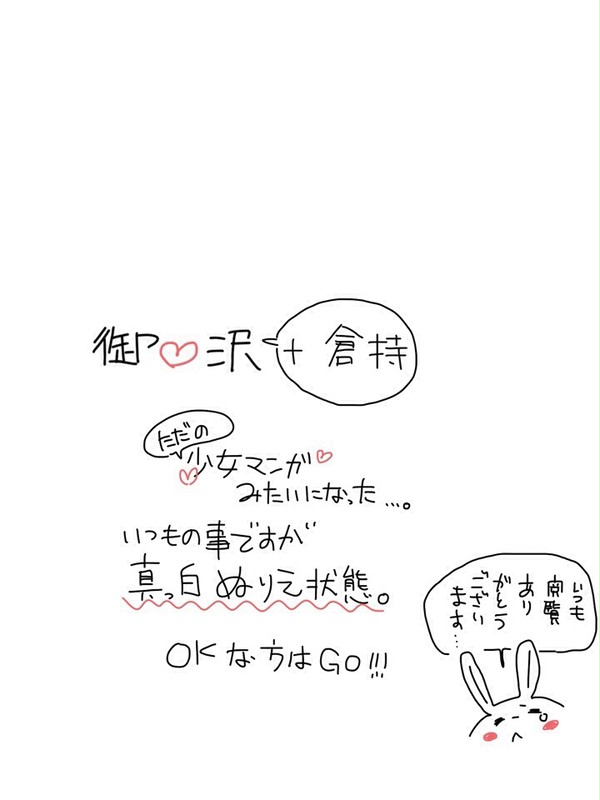 御♡沢
+ 倉持
ただの
少女マンガ
みたいになった…。
いつもの事ですが
真っ白ぬりえ状態。
OKな方はGO!!!
いつも
閲覧
あり
がとう
ござい
ます…